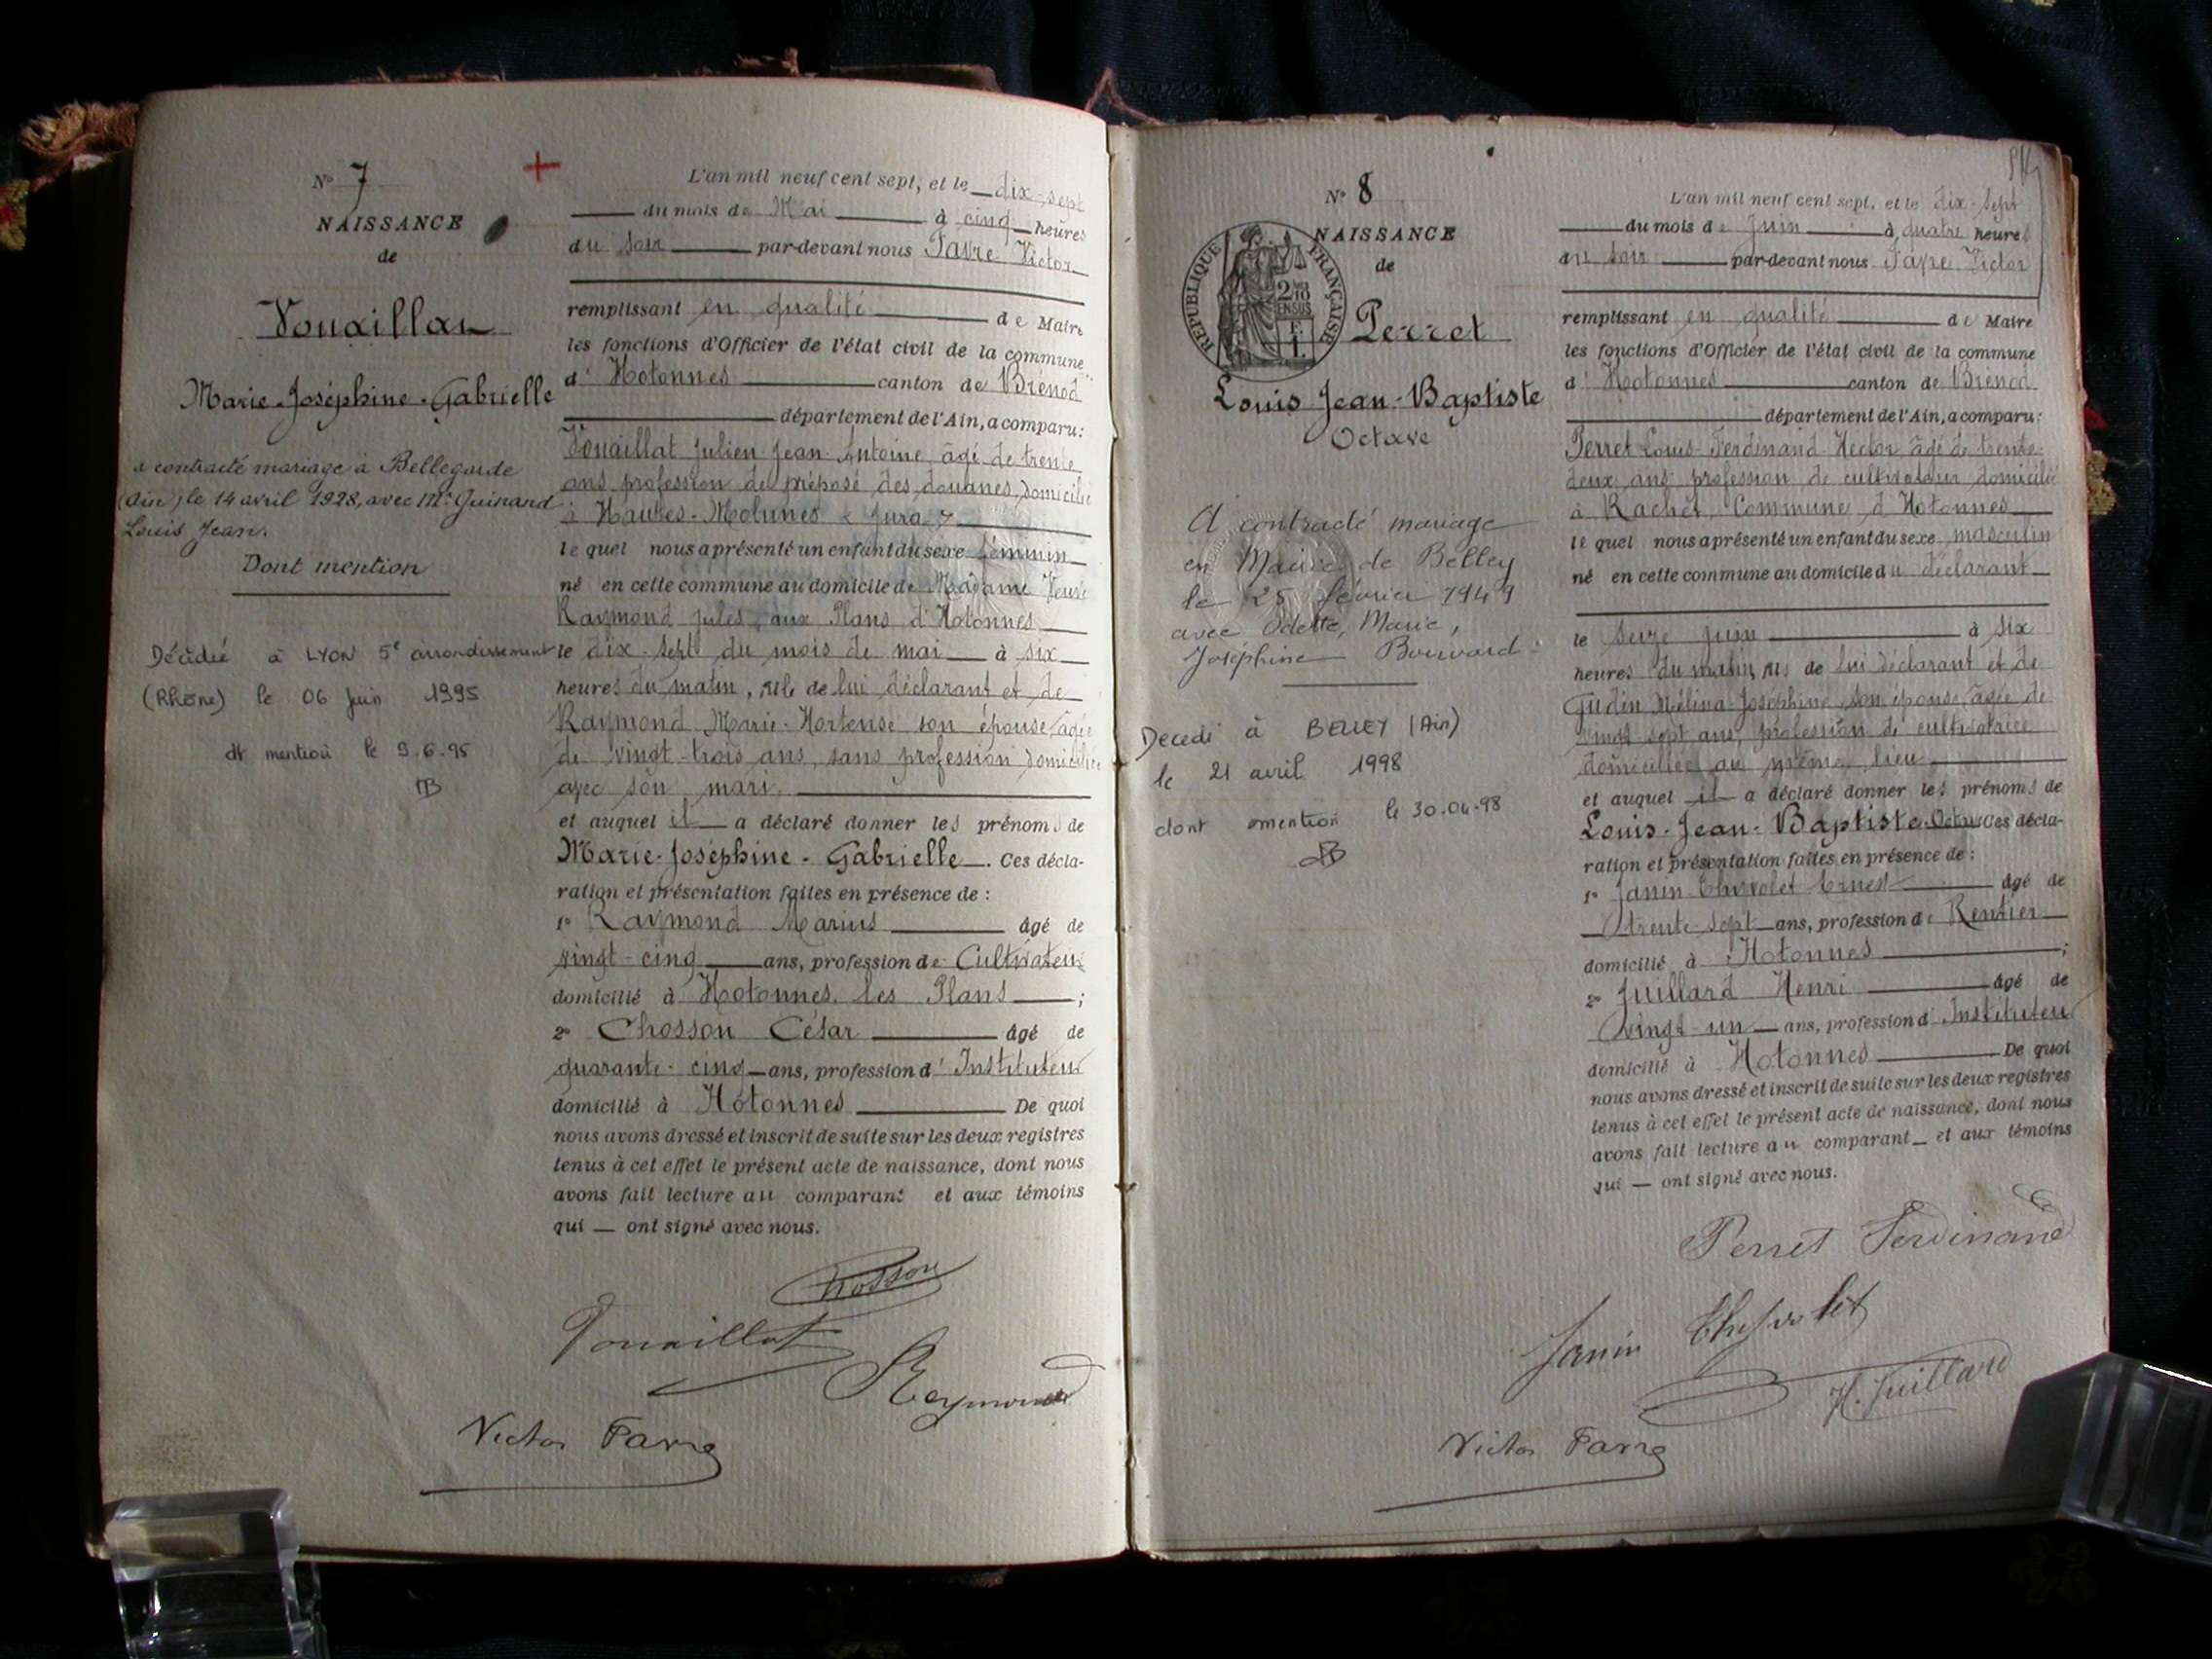 N° 7
NAISSANCE
de
Vouaillat
Marie-Joséphine-Gabrielle
a contracté mariage à Bellegarde
(Ain) le 14 avril 1928, avec Mr Guinand
Louis Jean.
Dont mention
Décédée à LYON 5e arrondissement
(Rhône) le 06 Juin 1995
dt mention le 9.6.95
L'an mil neuf cent sept, et le dix-sept
du mois de Mai à cinq heures
du soir par-devant nous Favre Victor
remplissant en qualité de Maire
les fonctions d'Officier de l'état civil de la commune
d' Hotonnes canton de Brénod
département de l'Ain, a comparu:
Vouaillat Julien Jean-Antoine, âgé de trente
ans profession de préposé des douanes, domicilié
à Hautes-Molunes (Jura)
lequel nous a présenté un enfant du sexe féminin
né en cette commune au domicile de Madame Veuve
Raymond Jules, aux Plans d'Hotonnes
le dix-sept du mois de mai à six
heures du matin, fille de lui déclarant et de
Raymond Marie-Hortense son épouse âgée
de vingt-trois ans, sans profession domiciliée
avec son mari.
et auquel il a déclaré donner les prénoms de
Marie-Joséphine-Gabrielle. Ces décla-
ration et présentation faites en présence de :
1° Raymond Marius âgé de
vingt-cinq ans, profession de Cultivateur
domicilié à Hotonnes les Plans ;
2° Chosson César âgé de
quarante-cinq ans, profession d' Instituteur
domicilié à Hotonnes De quoi
nous avons dressé et inscrit de suite sur les deux registres
tenus à cet effet le présent acte de naissance, dont nous
avons fait lecture au comparant et aux témoins
qui — ont signé avec nous.
Chosson
Vouaillat
Reymond
Victor Favre
N° 8
RÉPUBLIQUE FRANÇAISE
2/10 EN SUS
NAISSANCE
de
Perret
Louis Jean-Baptiste
Octave
A contracté mariage
en Mairie de Belley
le 25 février 1949
avec Odette, Marie,
Joséphine Bouvard.
Décédé à BELLEY (Ain)
le 21 avril 1998
dont mention le 30.04.98
L'an mil neuf cent sept, et le dix-sept
du mois de Juin à quatre heures
du soir par-devant nous Favre Victor
remplissant en qualité de Maire
les fonctions d'Officier de l'état civil de la commune
d' Hotonnes canton de Brénod
département de l'Ain, a comparu:
Perret Louis-Ferdinand-Hector âgé de trente-
deux ans profession de cultivateur domicilié
à Rachet, Commune d'Hotonnes
lequel nous a présenté un enfant du sexe masculin
né en cette commune au domicile du déclarant
le seize juin à six
heures du matin, fils de lui déclarant et de
Gudin Mélina-Joséphine, son épouse âgée de
vingt-sept ans, profession de cultivatrice
domiciliée au même lieu
et auquel il a déclaré donner les prénoms de
Louis-Jean-Baptiste-Octave Ces décla-
ration et présentation faites en présence de :
1° Janin Ernest âgé de
trente-sept ans, profession de Rentier
domicilié à Hotonnes ;
2° Juillard Henri âgé de
vingt-un ans, profession d' Instituteur
domicilié à Hotonnes De quoi
nous avons dressé et inscrit de suite sur les deux registres
tenus à cet effet le présent acte de naissance, dont nous
avons fait lecture au comparant et aux témoins
qui — ont signé avec nous.
Perret Ferdinand
Janin
H. Juillard
Victor Favre